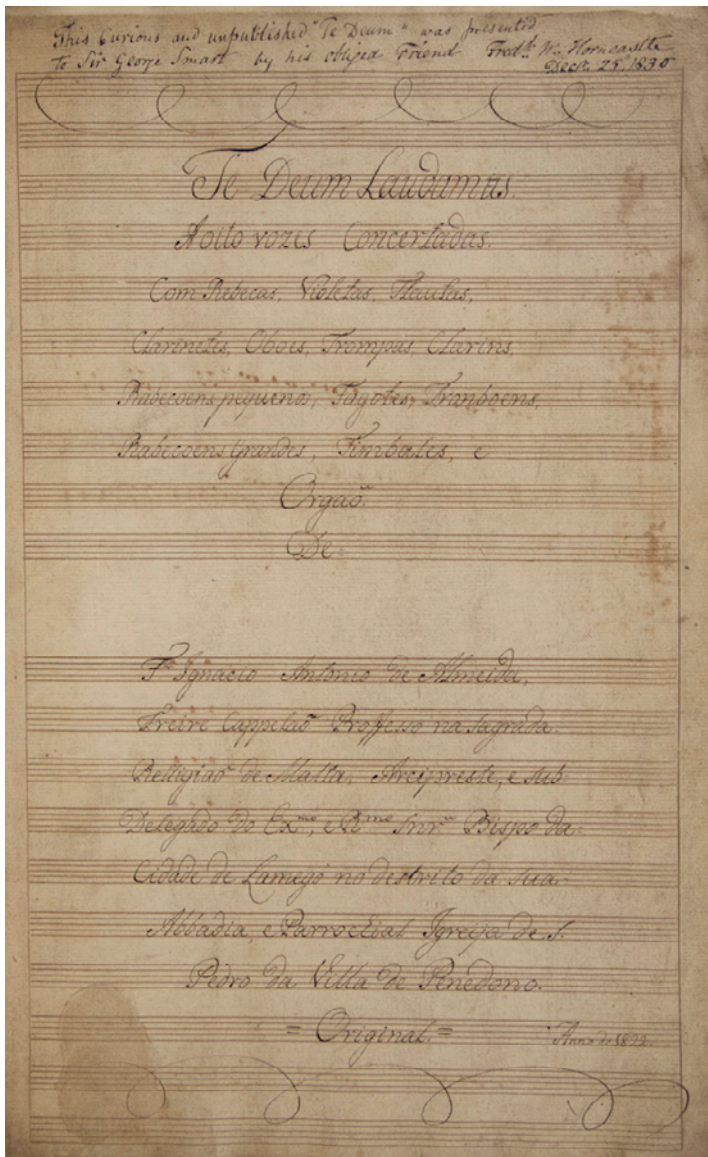 This Curious and unpublished "Te Deum" was presented
to Sir George Smart by his obliged Friend Fredk. W. Horncastle
Decr. 25th 1830
Te Deum Laudamus.
A oito vozes Concertadas.
Com Rebecas, Violetas, Flautas,
Clarinetes, Oboes, Trompas, Clarins,
Rabecoens pequenos, Fagotes, Tranboens,
Rabecoens Grandes, Timbales, e
Orgaõ.
De=
Fr. Ignacio Antonio de Almeida,
Freire Cappelaõ Proffesso na sagrada
Relligiaõ de Malta, Arcipreste, e sub
Delegado do Exmo, e Rmo Snr. Bispo da=
Cidade de Lamego no destrito da sua
Abbadia, e Parrochial Igreja de S.
Pedro da Villa de Penedono.
= Original. =
Anno de 1822.